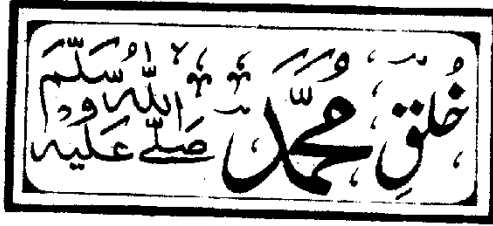 خُلقِ مُحَمَّد صَلَّے اللّٰہُ عَلَیْہِ وَسَلَّمَ